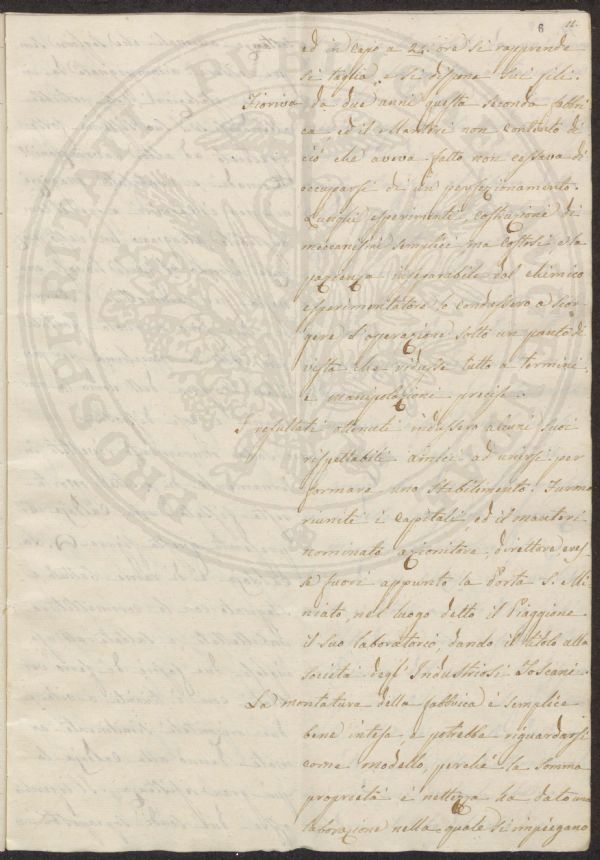 6 11.
ed in capo a 24 ore si rapprende
si taglia e si dispone sui fili.
Fioriva da due anni questa seconda fabbri
ca, ed il Manteri non contento di
ciò che aveva fatto non cessava di
occuparsi di un perfezionamento.
Lunghi esperimenti, costruzione di
meccanismi semplici ma costosi e la
pazienza inseparabile dal chimico
esperimentatore lo condussero a scor
gere l'operazione sotto un punto di
vista che ridusse tutto a termini
e manipolazioni precise.
I resultati ottenuti indussero alcuni suoi
rispettabili amici ad unirsi per
formare uno Stabilimento. Furono
riuniti i capitali, ed il Manteri
nominato azionitore, direttore eres
se fuori appunto la Porta S. Mi
niato, nel luogo detto il Piaggione
il suo laboratorio, dando il titolo alla
società degl'Industriosi Toscani.
La montatura della fabbrica è semplice
bene intesa e potrebbe riguardarsi
come modello, perchè la somma
proprietà e nettezza ha dato una
laborazione nella quale si impiegano
PROSPERITATI PVBLICAE